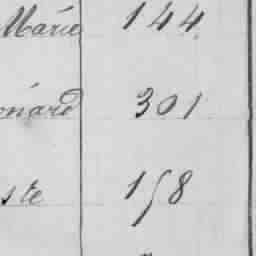 Marie 144
onard 301
ste 158